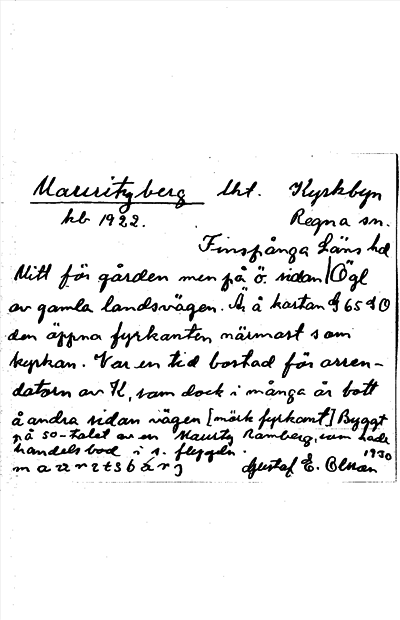 Mauritzberg lht. Kyrkbyn
kb 1922. Regna sn.
Finspånga Läns hd
Mitt för gården men på ö. sidan Ögl
av gamla landsvägen. Är å kartan 65
den öppna fyrkanten närmast som
kyrkan. Var en tid bostad för arren-
datorn av K, som dock i många år bott
å andra sidan vägen [mörk fyrkant] Byggt
på 50-talet av en Mauritz Ramberg, som hade
handelsbod i s. flygeln. 1930
maʊrɪtsbærj Gustaf E. Olsson